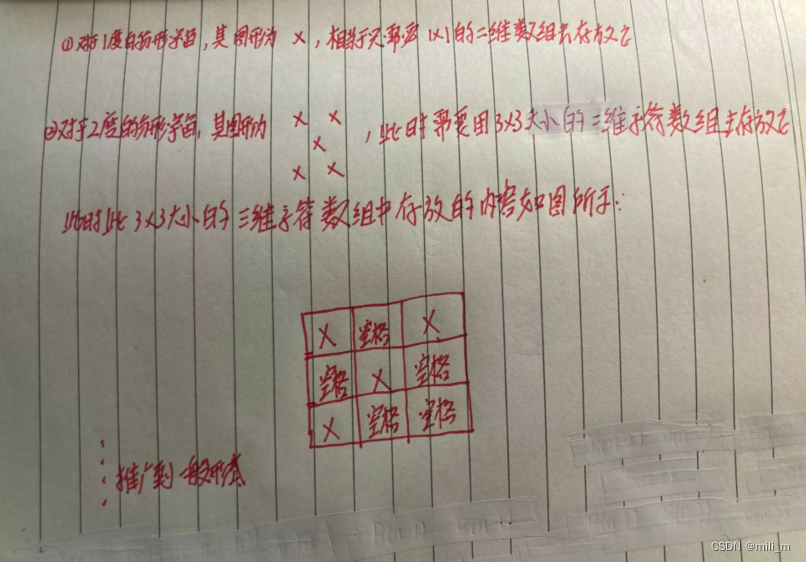 ①对于1度的分形宇宙,其图形为 X ,相当于只需要 1X1的二维数组去存放它
②对于2度的分形宇宙,其图形为 X X X X X ,此时需要用3x3大小的二维字符数组去存放它
此时此3x3大小的二维字符数组中存放的内容如图所示:
X 空格 X
空格 X 空格
X 空格 空格
推广到一般形式
CSDN @mili_m